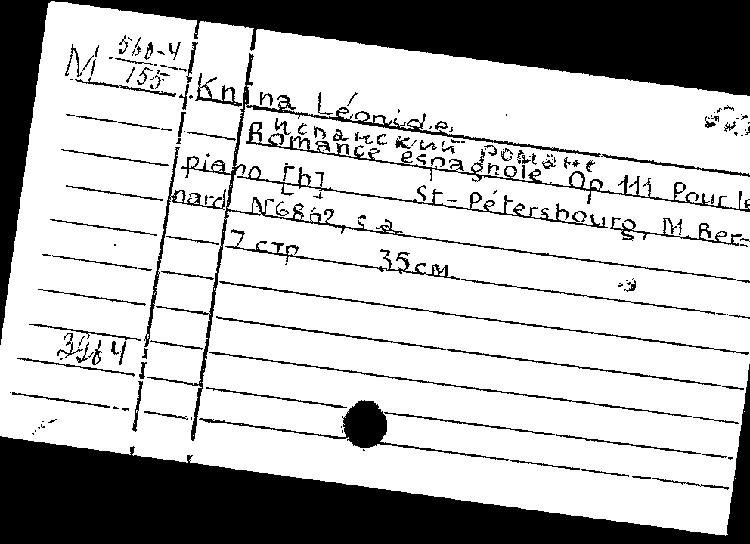 М 560-4
155
Knina Léonide
Испанский романс
Romance espagnole. Op. 111. Pour le
piano [h] St-Pétersbourg, M. Ber-
nard N 6842, s.a.
7 стр 35 см.